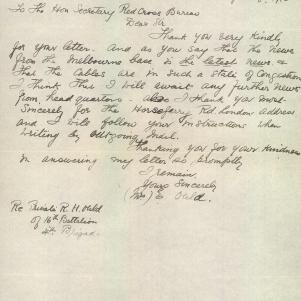 To the Hon Secretary Red Cross Bureau
Dear Sir
Thank you very kindly
for your letter. And as you say that the news
from the Melbourne base is the latest news &
that the Cables are in such a state of Congestion
I think that I will await any further news
from head quarters - also I thank you most
Sincerely for the Horseferry Rd. London Address
and I will follow your instructions when
writing by outgoing Mail.
Thanking you for your Kindness
in answering my letter so promptly
I remain
Yours Sincerely
(Mrs) E. Ould.
Re Private R. H. Ould
of 16th Battalion
4th Brigade.